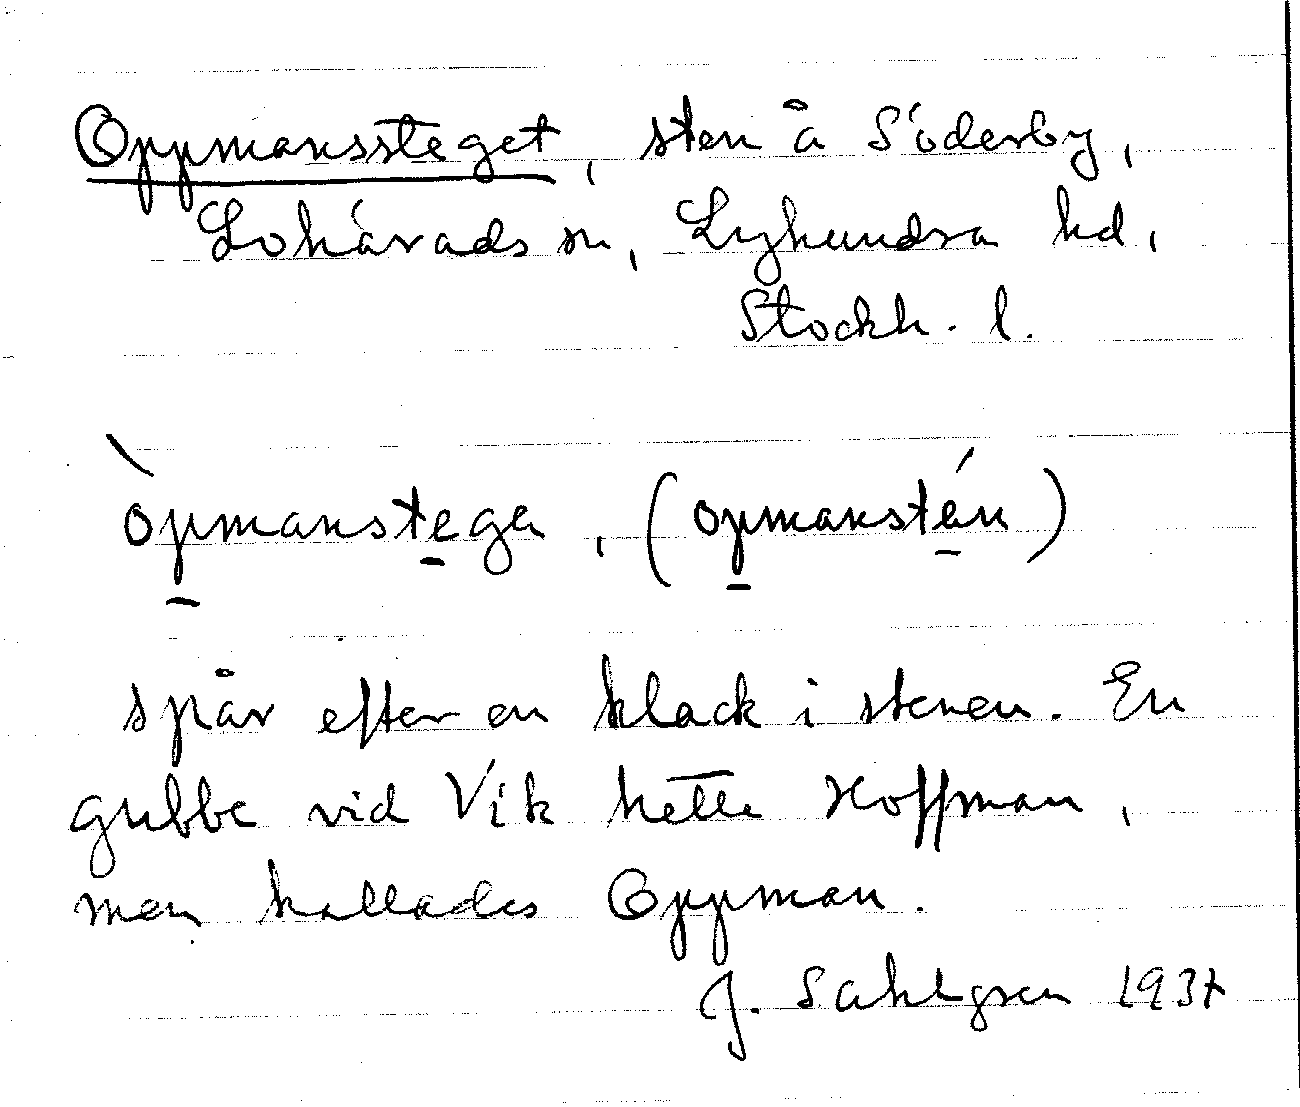 Oppmanssteget, sten å Söderby,
Lohärads sn, Lyhundra hd,
Stockh. l.
òpmanstega, (opmanstén)
spår efter en klack i stenen. En
gubbe vid Vík hette Hoffman,
men kallades Oppman.
J. Sahlgren 1937